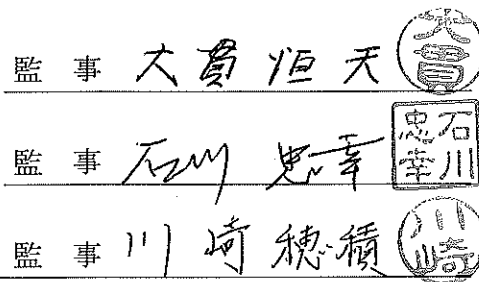 監事 大貫恒夫 大貫
監事 石川忠幸 石川忠幸
監事 川崎穂積 川崎